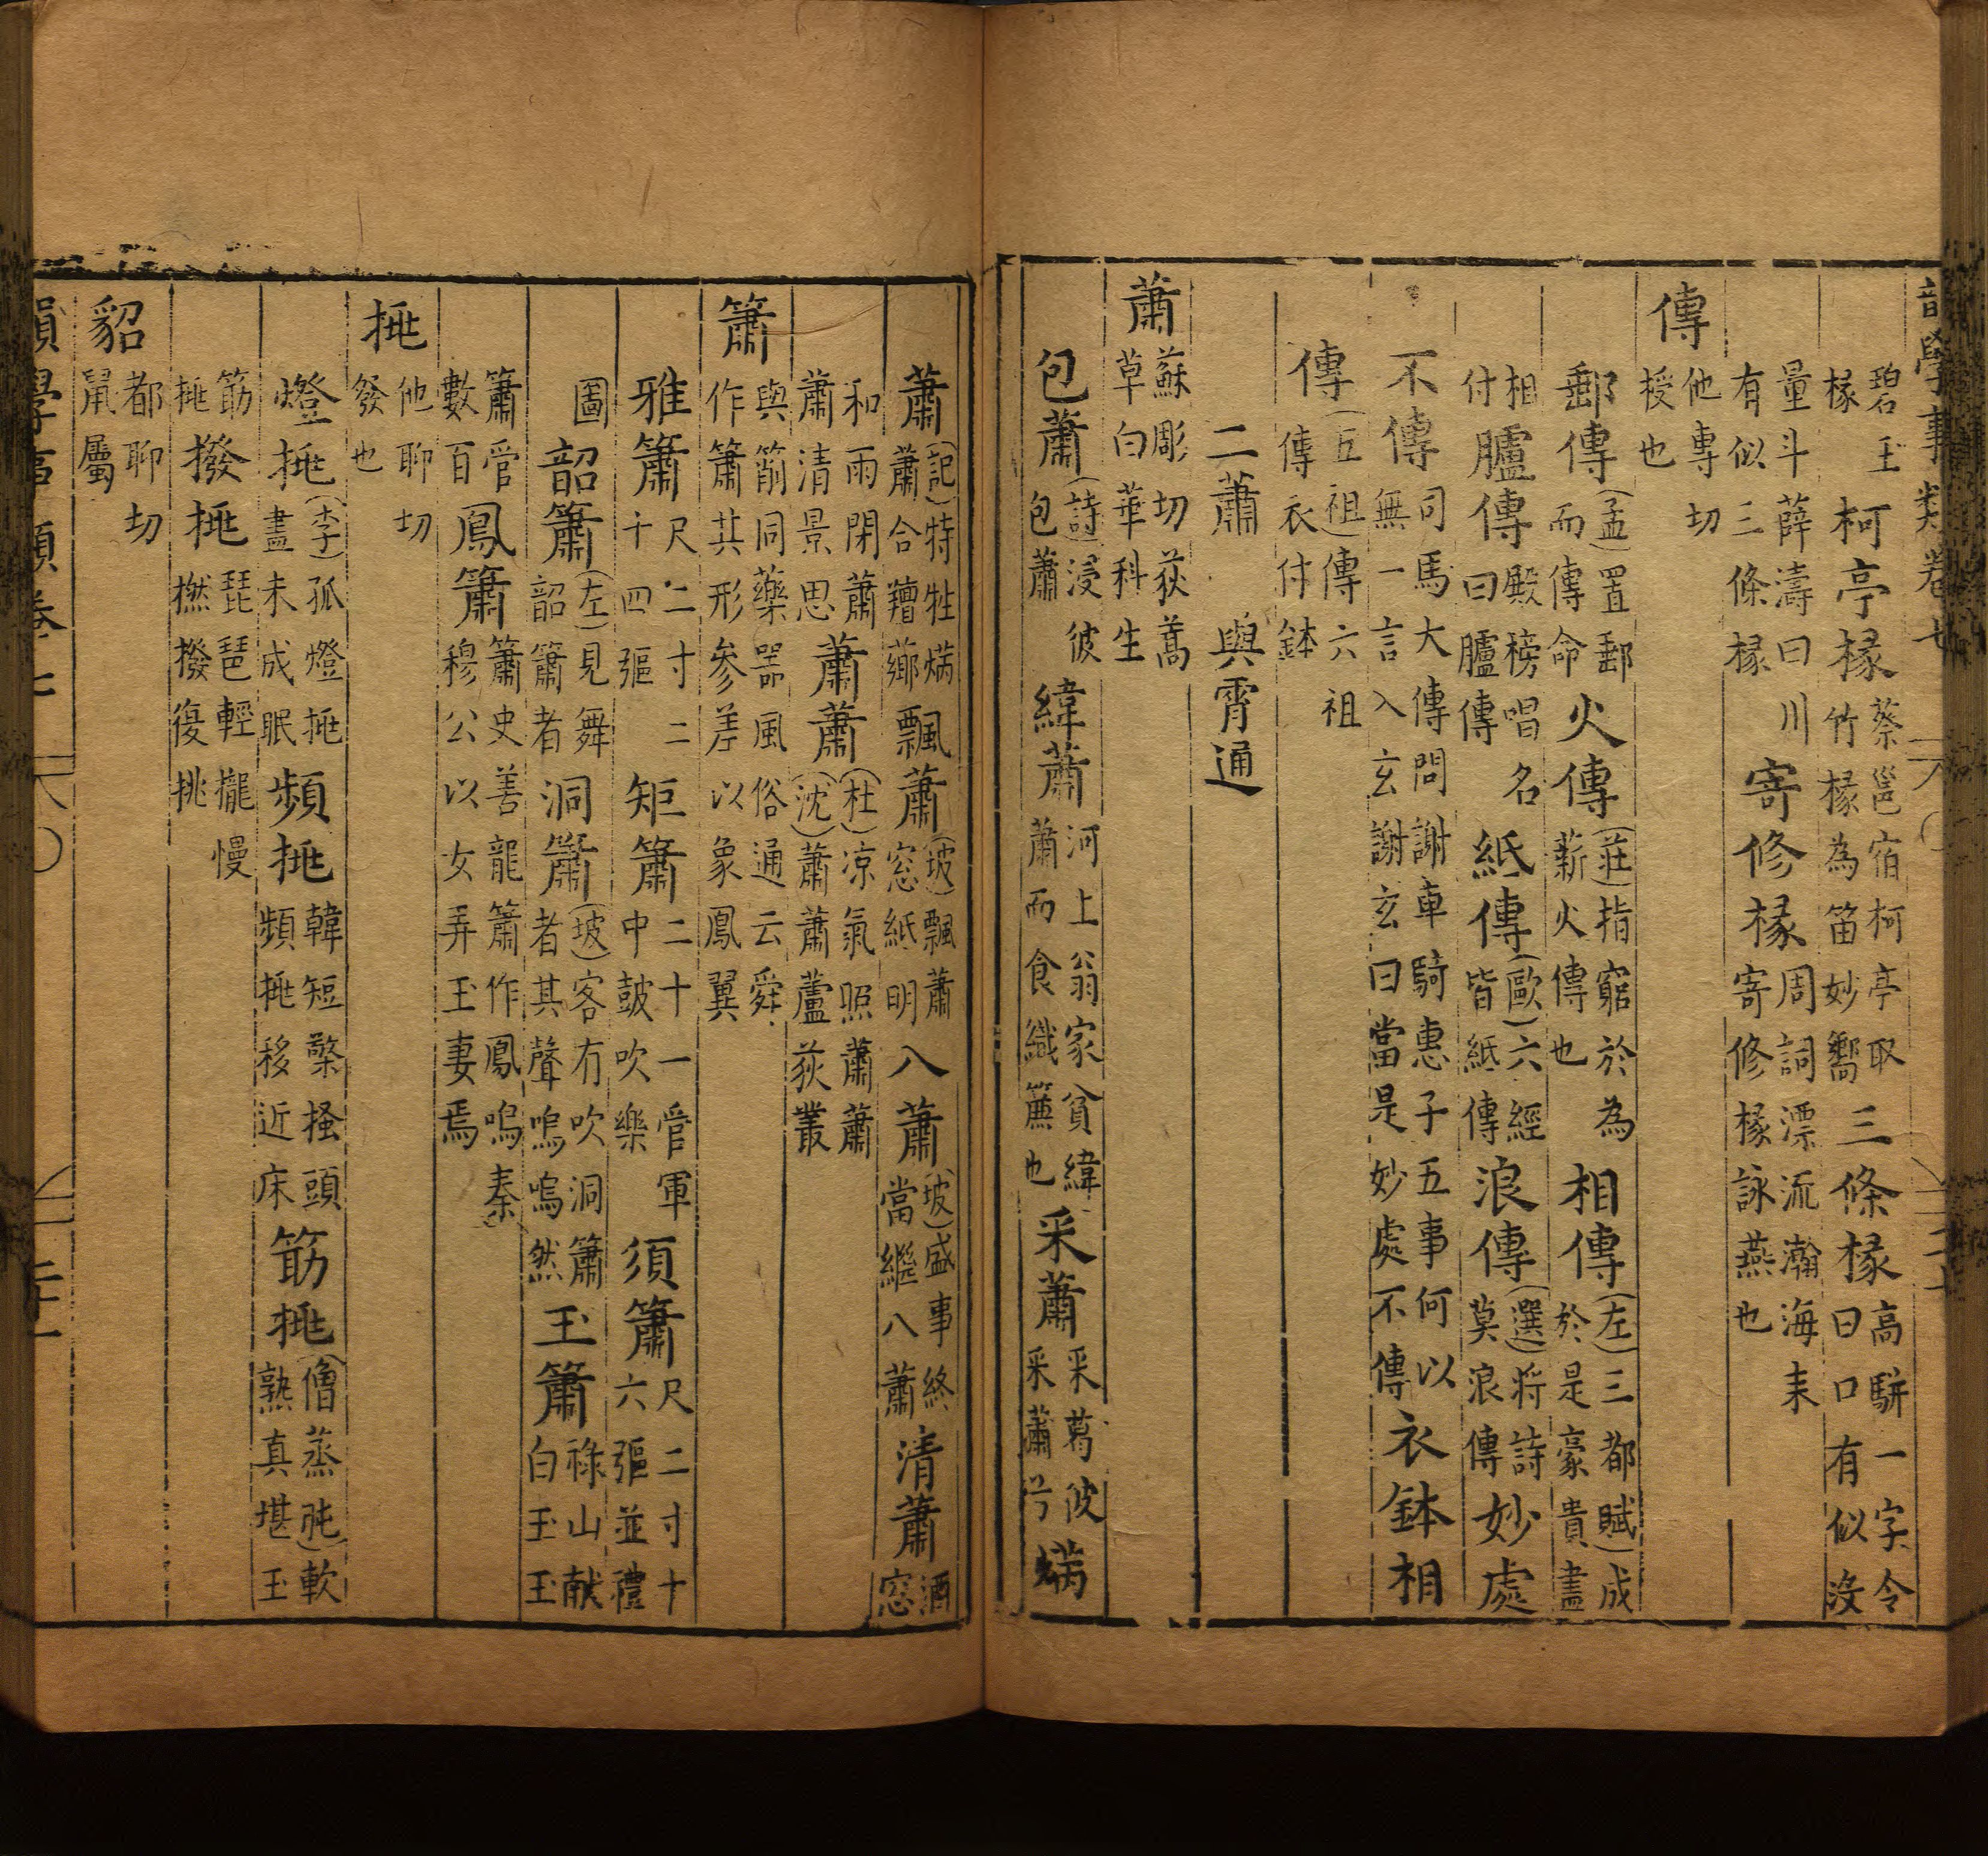 韻學事類卷七
碧玉椽柯亭椽蔡邕宿柯亭取竹椽為笛妙響三條椽高駢一字令曰口有似沒
量斗薛濤曰川有似三條椽寄修椽周詞漂流瀚海耒寄修椽詠燕也
傳他專切授也
郵傳(孟)置郵而傳命火傳(莊)指窮於為薪火傳也相傳(左)三都賦)成於是豪貴盡
相付臚傳殿榜唱名曰臚傳紙傳(歐)六經皆紙傳浪傳(選)将詩莫浪傳妙處
不傳司馬大傳問謝車騎惠子五事何以無一言入玄謝玄曰當是妙處不傳衣鉢相
傳(五祖)傳六祖傳衣付鉢
二蕭 與霄通
蕭蘇彫切荻蒿草白華科生
包蕭(詩)浸彼包蕭緯蕭河上翁家貧緯蕭而食織簾也采蕭采葛彼采蕭兮焫
蕭(記)特牲焫蕭合羶薌飄蕭(坡)飄蕭窓紙明八蕭(坡)盛事終當繼八蕭清蕭酒窓
和雨閉蕭蕭清景思蕭蕭(杜)凉氣照蕭蕭(沈)蕭蕭蘆荻叢
簫與箾同藥器風俗通云舜作簫其形參差以象鳳翼
雅簫尺二寸二十四彄矩簫二十一管軍中鼓吹樂須簫尺二寸十六彄並禮
圖韶簫(左)見舞韶簫者洞簫(坡)客有吹洞簫者其聲嗚嗚然玉簫祿山献白玉玉
簫管數百鳳簫簫史善龍簫作鳳嗚秦穆公以女弄玉妻焉
挑他聊切發也
燈挑(李)孤燈挑盡未成眠頻挑韓短檠掻頭頻挑移近床筋挑(僧蒸㹠)軟熟真堪玉
筋挑撥挑琵琶輕攏慢撚撥復挑
貂都聊切鼠屬
韻學事類卷七